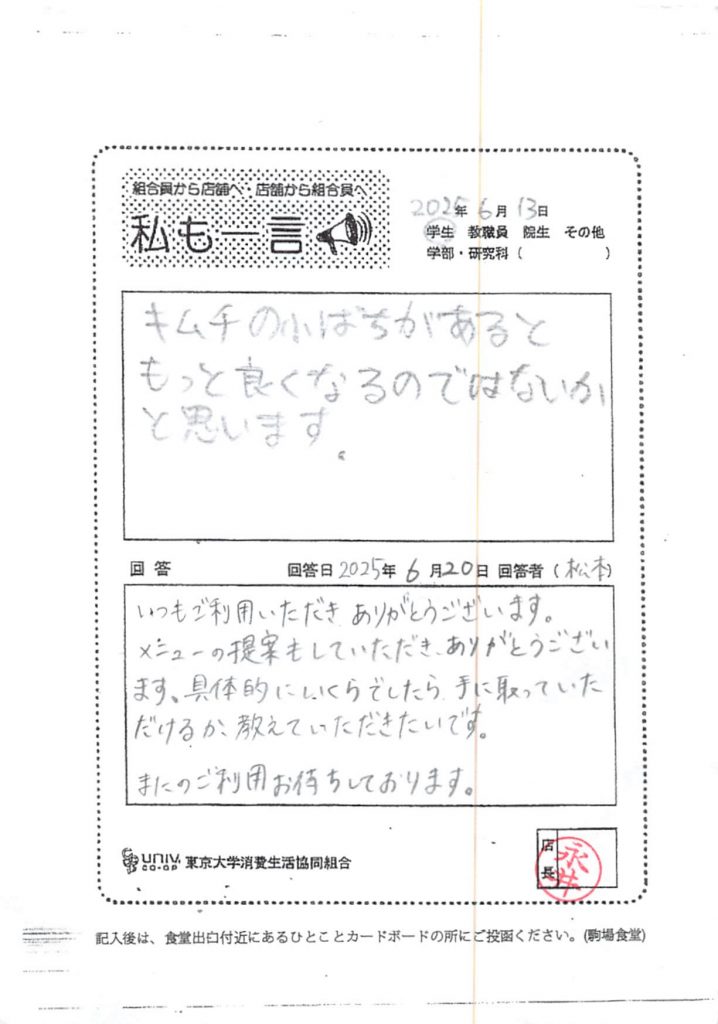 組合員から店舗へ・店舗から組合員へ
私も一言
2025年 6月 13日
学生 教職員 院生 その他
学部・研究科（ ）
キムチの小ばちがあると
もっと良くなるのではないか
と思います。
回答 回答日 2025年 6月20日 回答者（松本）
いつもご利用いただき ありがとうございます。
メニューの提案もしていただき、ありがとうござい
ます。具体的にいくらでしたら 手に取っていた
だけるか、教えていただきたいです。
またのご利用お待ちしております。
UNIV. CO-OP 東京大学消費生活協同組合
店長
永井
記入後は、食堂出口付近にあるひとことカードボードの所にご投函ください。(駒場食堂)